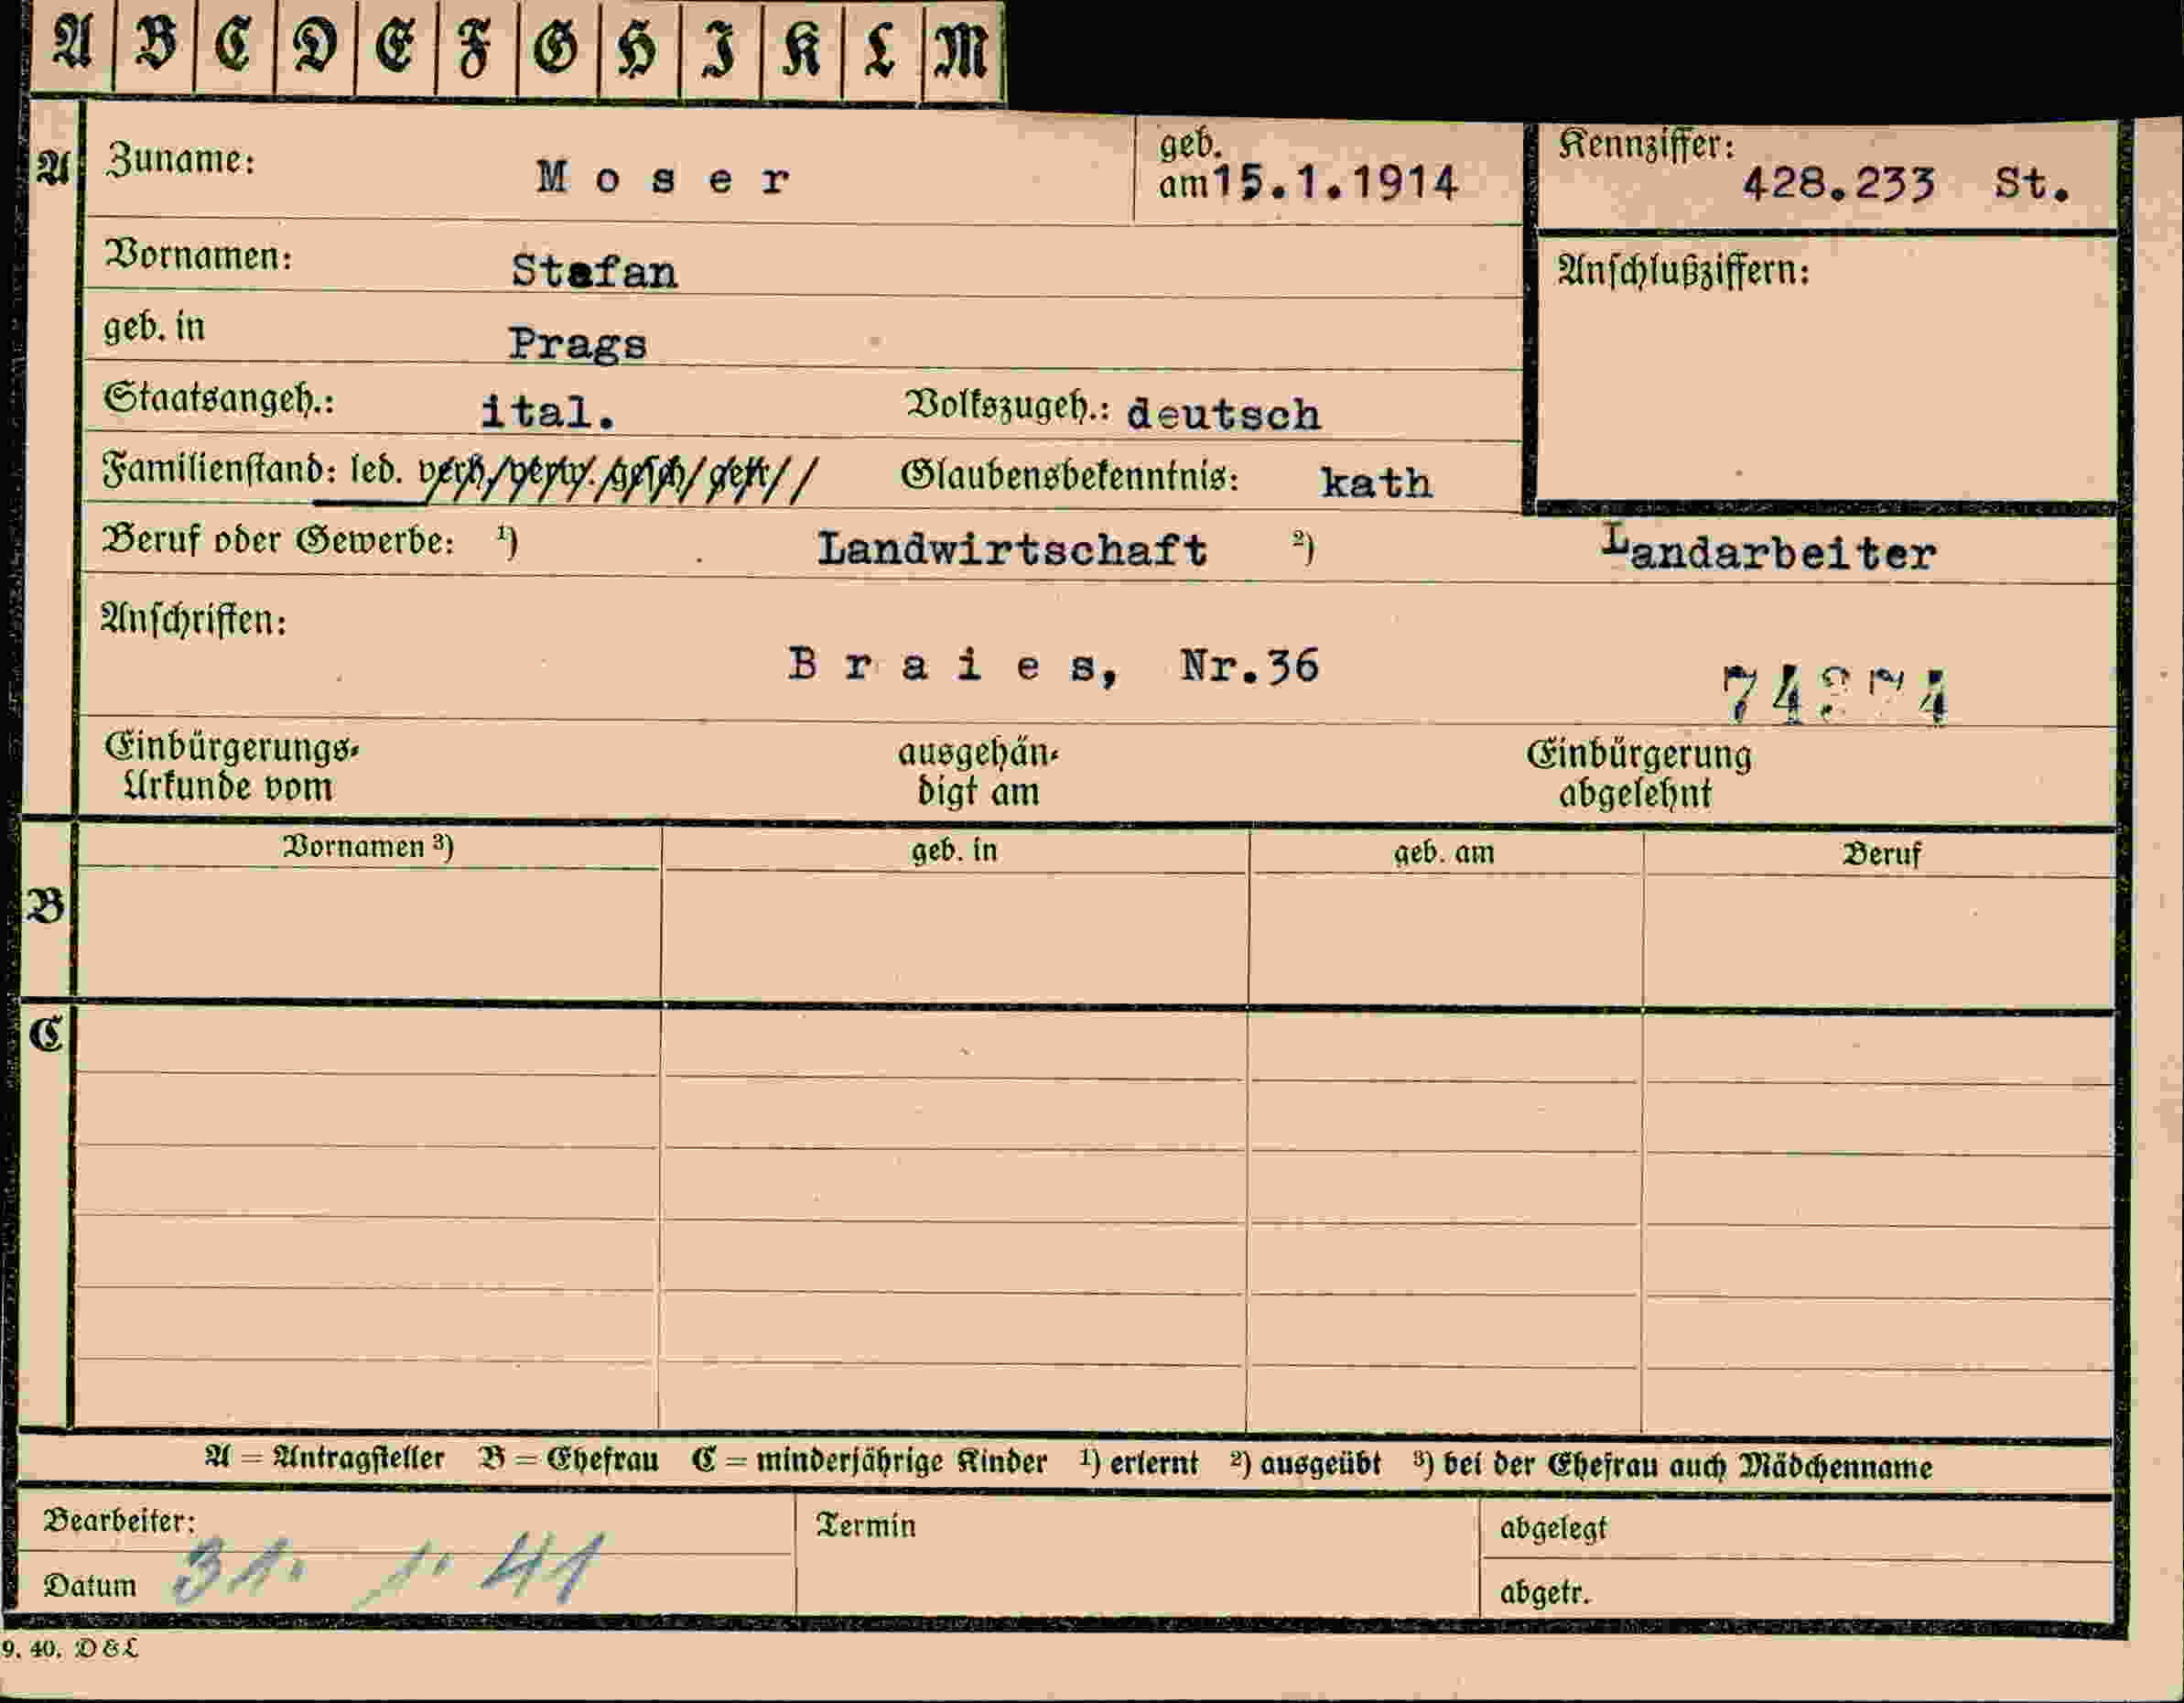 A B C D E F G H I K L M
A Zuname: Moser geb. am 15.1.1914 Kennziffer: 428.233 St.
Vornamen: Stefan Anschlußziffern:
geb. in Prags
Staatsangeh.: ital. Volkszugeh.: deutsch
Familienstand: led. verh./verw./gesch./getr. Glaubensbekenntnis: kath
Beruf oder Gewerbe: 1) Landwirtschaft 2) Landarbeiter
Anschriften:
Braies, Nr.36
Einbürgerungs- ausgehän- Einbürgerung
Urkunde vom digt am abgelehnt
Vornamen 3) geb. in geb. am Beruf
B
C
A = Antragsteller B = Ehefrau C = minderjährige Kinder 1) erlernt 2) ausgeübt 3) bei der Ehefrau auch Mädchenname
Bearbeiter: Termin abgelegt
Datum 31. 1. 41 abgetr.
9. 40. D & L